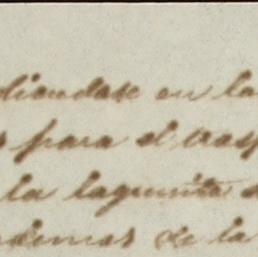 diandose en la
para el trasp
la lagunita
ademas de la